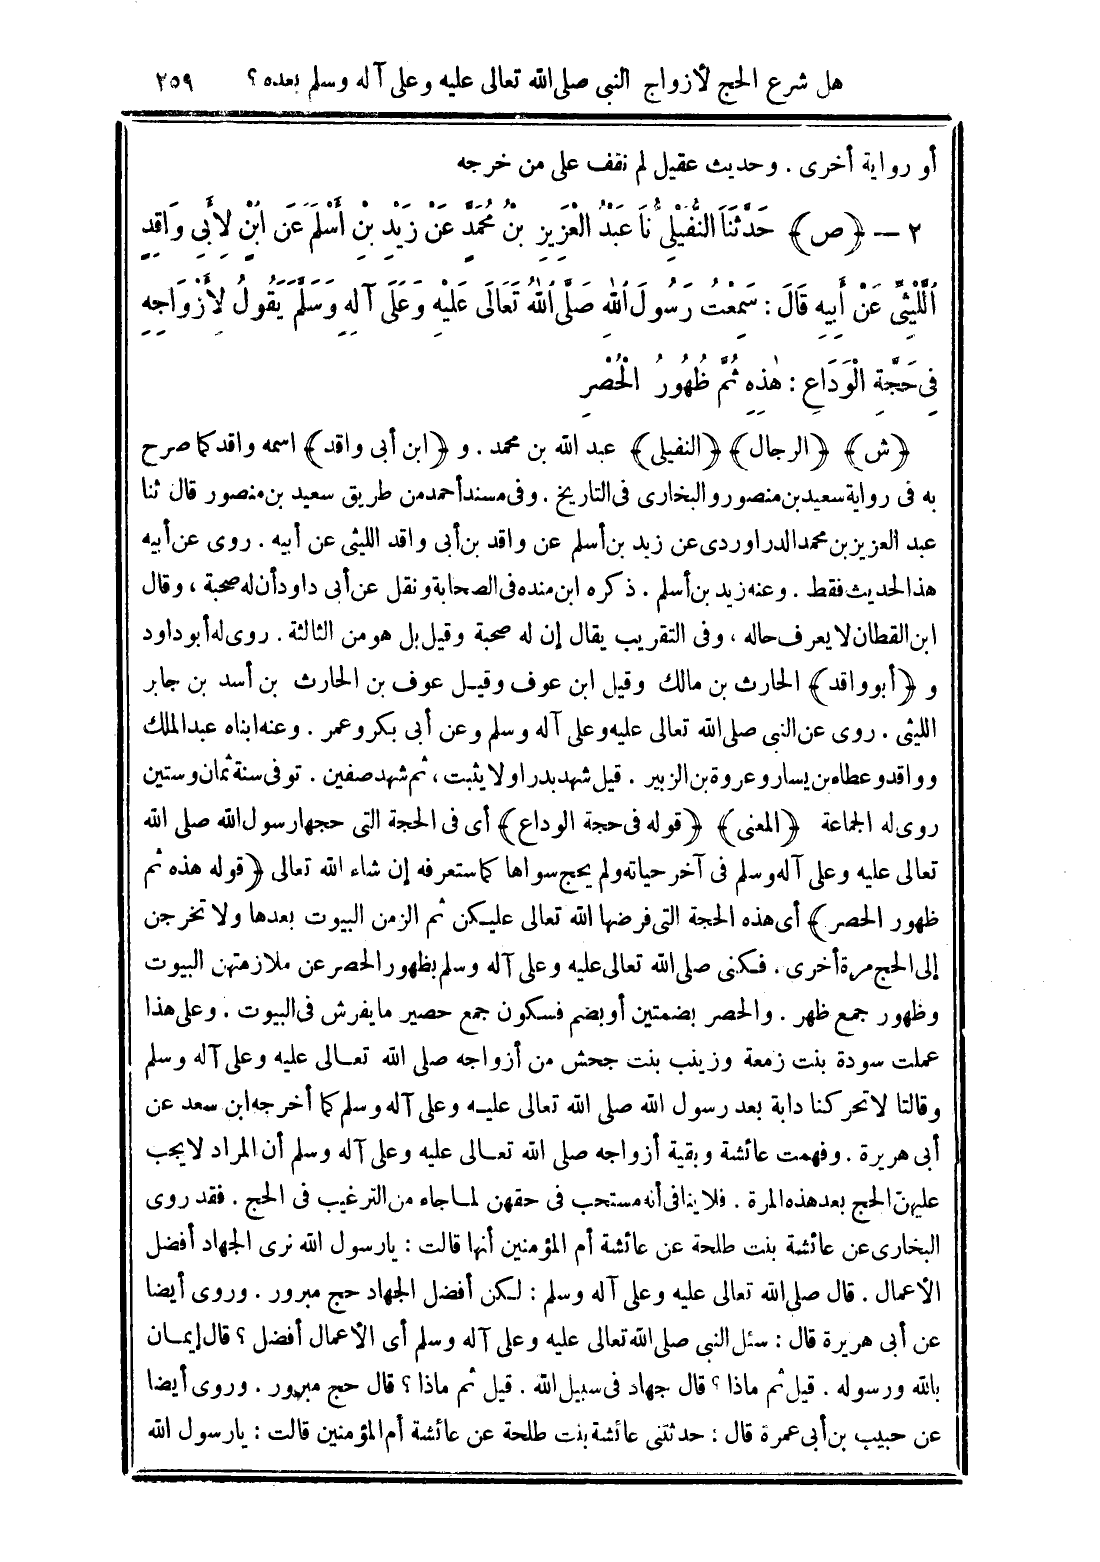 هل شرع الحج لأزواج النبي صلى الله تعالى عليه وعلى آله وسلم بعده ؟ ٢٥٩
أو رواية أخرى . وحديث عقيل لم نقف على من خرجه
٢ — ﴿ص﴾ حَدَّثَنَا النُّفَيْلِيُّ نَا عَبْدُ الْعَزِيزِ بْنُ مُحَمَّدٍ عَنْ زَيْدِ بْنِ أَسْلَمَ عَنِ ابْنٍ لِأَبِي وَاقِدٍ
اللَّيْثِيِّ عَنْ أَبِيهِ قَالَ : سَمِعْتُ رَسُولَ اللهِ صَلَّى اللهُ تَعَالَى عَلَيْهِ وَعَلَى آلِهِ وَسَلَّمَ يَقُولُ لِأَزْوَاجِهِ
فِي حَجَّةِ الْوَدَاعِ : هٰذِهِ ثُمَّ ظُهُورُ الْحُصْرِ
﴿ش﴾ ﴿الرجال﴾ ﴿النفيلى﴾ عبد الله بن محمد . و ﴿ابن أبى واقد﴾ اسمه واقد كما صرح
به فى رواية سعيد بن منصور والبخارى فى التاريخ . وفى مسند أحمد من طريق سعيد بن منصور قال ثنا
عبد العزيز بن محمد الدراوردى عن زيد بن أسلم عن واقد بن أبى واقد الليثى عن أبيه . روى عن أبيه
هذا الحديث فقط . وعنه زيد بن أسلم . ذكره ابن منده فى الصحابة ونقل عن أبى داود أن له صحبة ، وقال
ابن القطان لا يعرف حاله ، وفى التقريب يقال إن له صحبة وقيل بل هو من الثالثة . روى له أبو داود
و ﴿أبو واقد﴾ الحارث بن مالك وقيل ابن عوف وقيل عوف بن الحارث بن أسد بن جابر
الليثى . روى عن النبى صلى الله تعالى عليه وعلى آله وسلم وعن أبى بكر وعمر . وعنه ابناه عبد الملك
وواقد وعطاء بن يسار وعروة بن الزبير . قيل شهد بدرا ولا يثبت ، ثم شهد صفين . توفى سنة ثمان وستين
روى له الجماعة ﴿المعنى﴾ ﴿قوله فى حجة الوداع﴾ أى فى الحجة التى حجها رسول الله صلى الله
تعالى عليه وعلى آله وسلم فى آخر حياته ولم يحج سواها كما ستعرفه إن شاء الله تعالى ﴿قوله هذه ثم
ظهور الحصر﴾ أى هذه الحجة التى فرضها الله تعالى عليكن ثم الزمن البيوت بعدها ولا تخرجن
إلى الحج مرة أخرى . فكنى صلى الله تعالى عليه وعلى آله وسلم بظهور الحصر عن ملازمتهن البيوت
وظهور جمع ظهر . والحصر بضمتين أو بضم فسكون جمع حصير ما يفرش فى البيوت . وعلى هذا
عملت سودة بنت زمعة وزينب بنت جحش من أزواجه صلى الله تعالى عليه وعلى آله وسلم
وقالتا لا تحركنا دابة بعد رسول الله صلى الله تعالى عليه وعلى آله وسلم كما أخرجه ابن سعد عن
أبى هريرة . وفهمت عائشة وبقية أزواجه صلى الله تعالى عليه وعلى آله وسلم أن المراد لا يجب
عليهنّ الحج بعد هذه المرة . فلا ينافى أنه مستحب فى حقهن لما جاء من الترغيب فى الحج . فقد روى
البخارى عن عائشة بنت طلحة عن عائشة أم المؤمنين أنها قالت : يا رسول الله نرى الجهاد أفضل
الأعمال . قال صلى الله تعالى عليه وعلى آله وسلم : لكن أفضل الجهاد حج مبرور . وروى أيضا
عن أبى هريرة قال : سئل النبى صلى الله تعالى عليه وعلى آله وسلم أى الأعمال أفضل ؟ قال إيمان
بالله ورسوله . قيل ثم ماذا ؟ قال جهاد فى سبيل الله . قيل ثم ماذا ؟ قال حج مبرور . وروى أيضا
عن حبيب بن أبى عمرة قال : حدثتنى عائشة بنت طلحة عن عائشة أم المؤمنين قالت : يا رسول الله